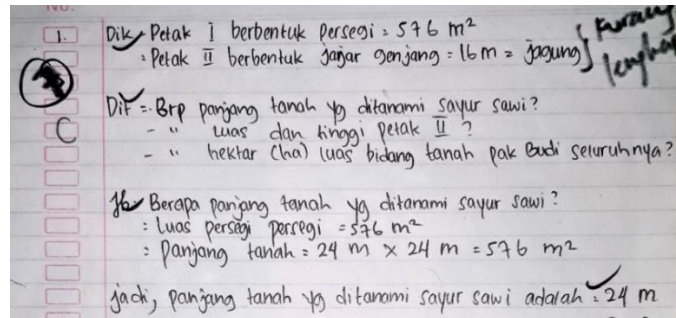 NO.
1. Dik : Petak I berbentuk persegi = 576 m²
: Petak II berbentuk jajar genjang = 16 m = jagung } kurang lengkap
C
Dit = - Brp panjang tanah yg ditanami sayur sawi?
- " luas dan tinggi petak II ?
- " hektar (ha) luas bidang tanah pak Budi seluruhnya?
Jb Berapa panjang tanah yg ditanami sayur sawi?
: Luas persegi persegi = 576 m²
: Panjang tanah = 24 m x 24 m = 576 m²
jadi, panjang tanah yg ditanami sayur sawi adalah = 24 m